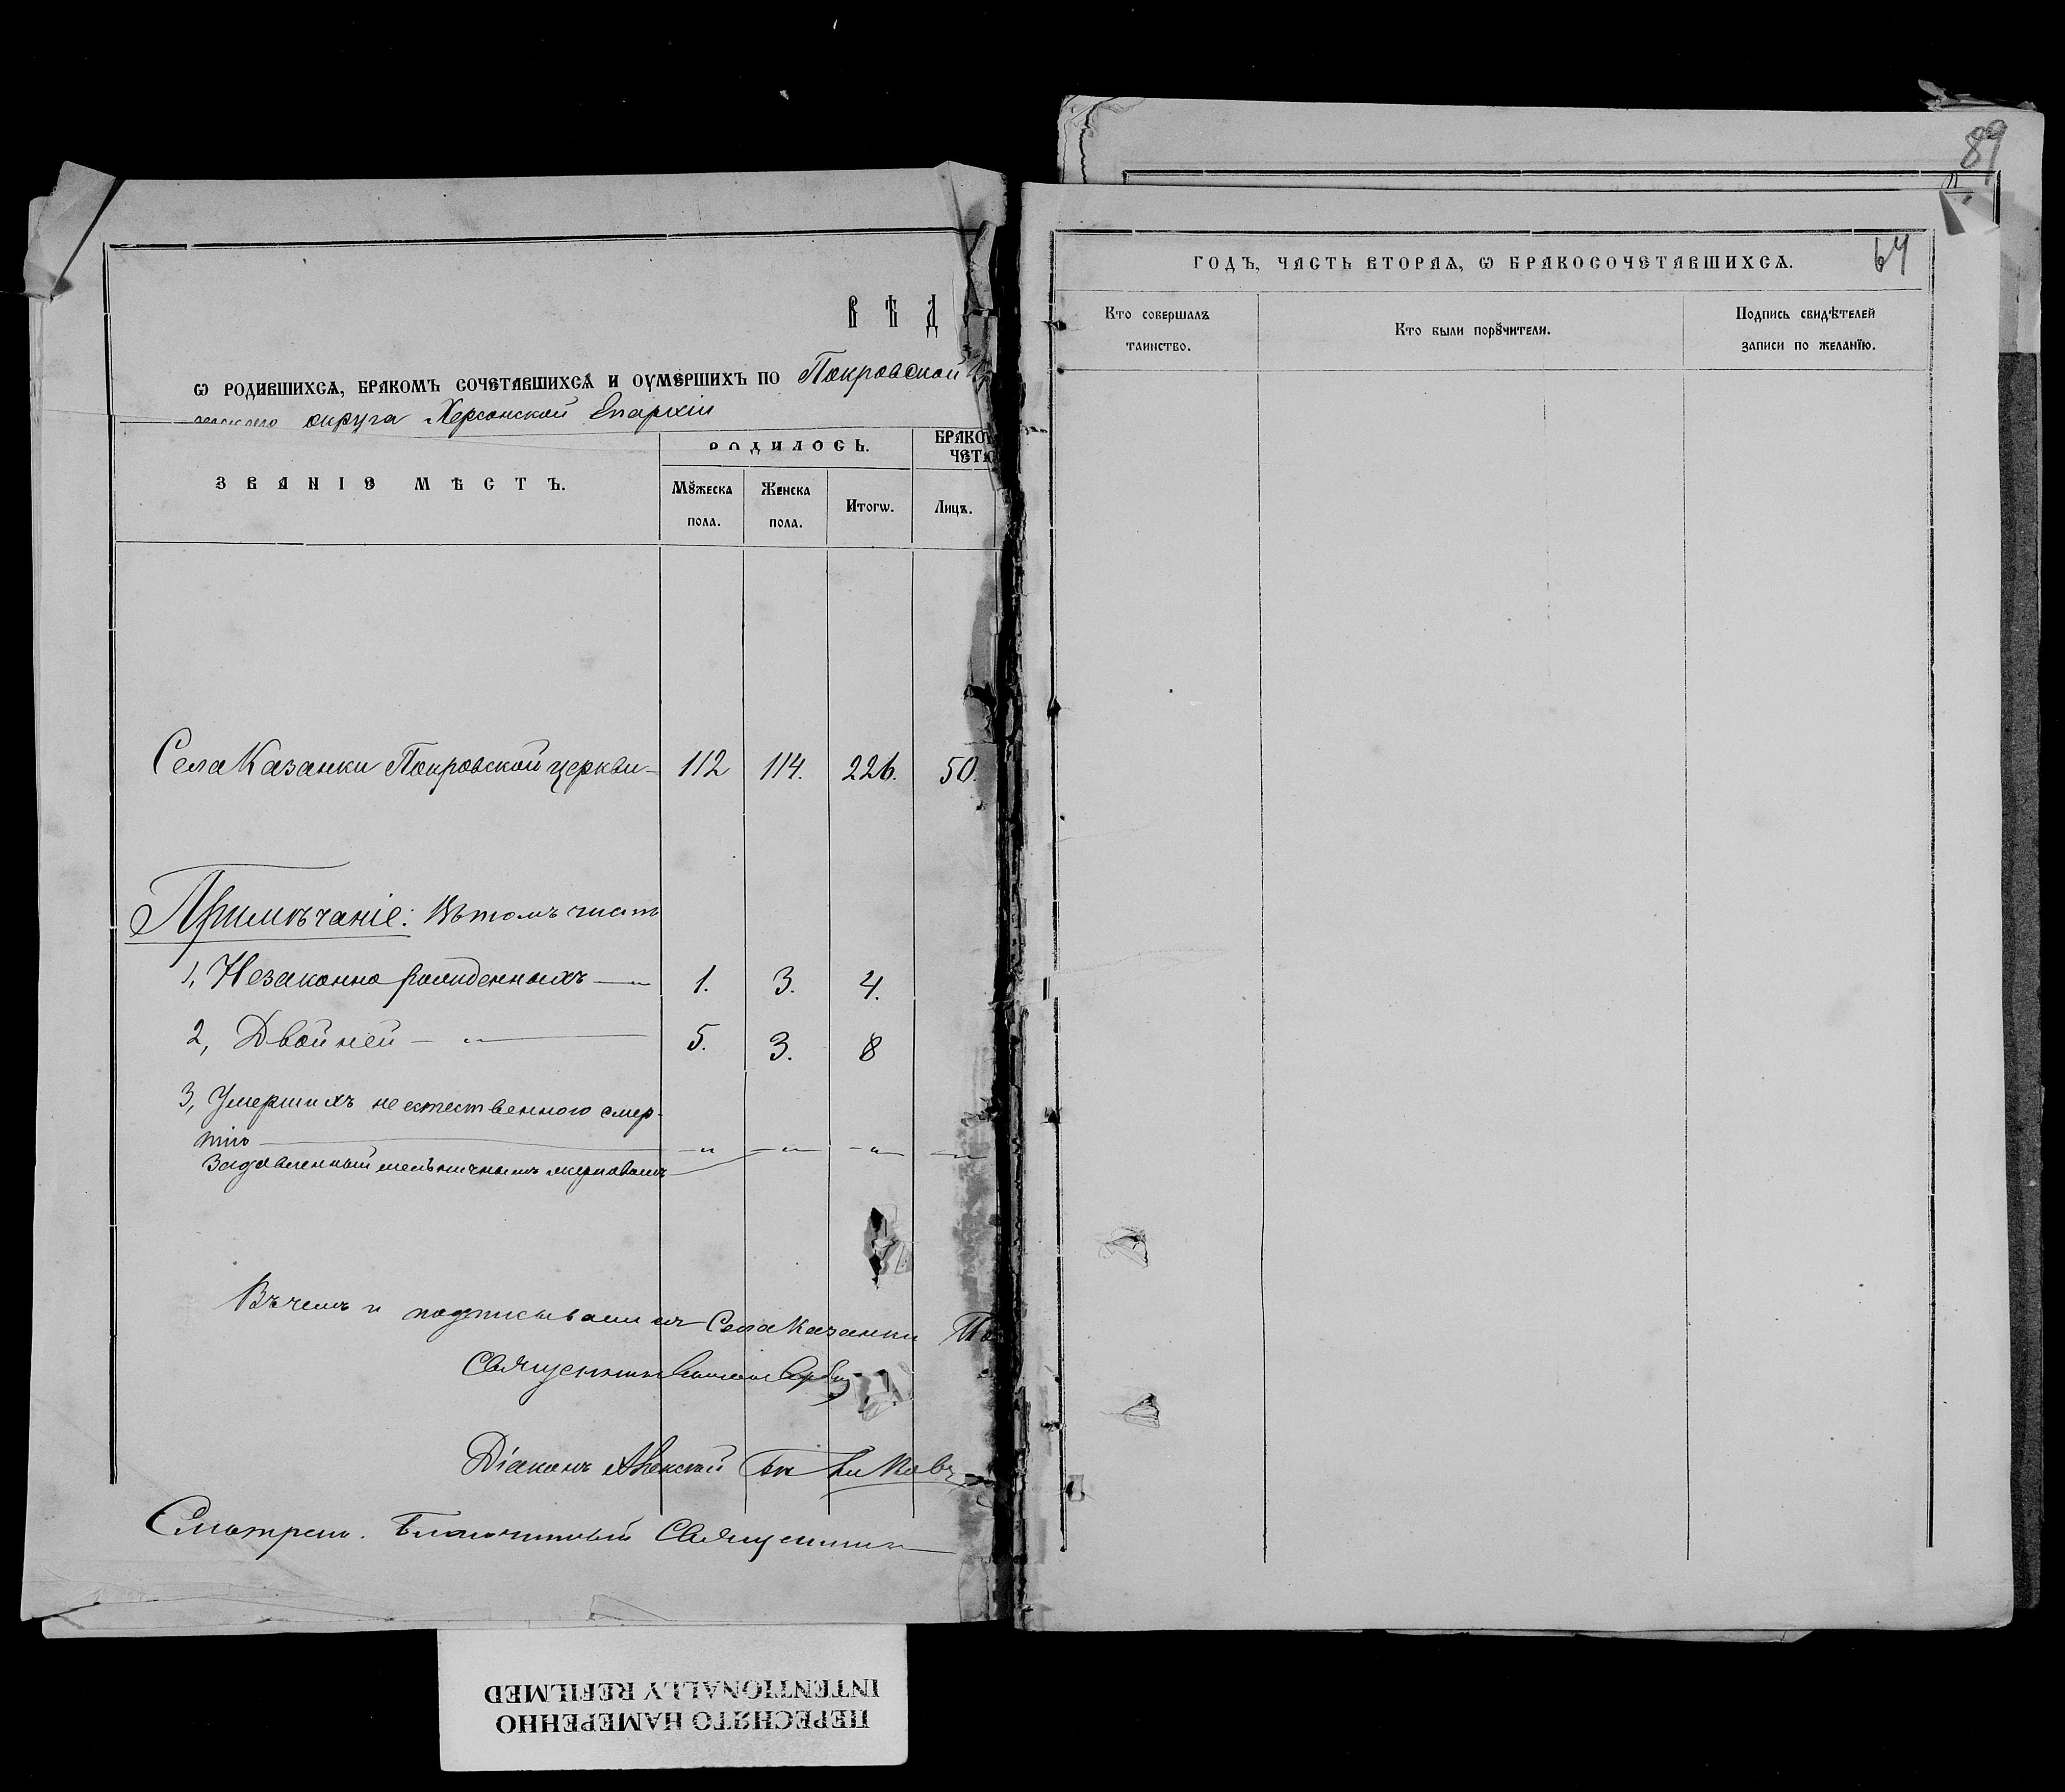 89
64
ВѢД
Ѡ РОДИВШИХСѦ, БРАКОМЪ СОЧЕТАВШИХСѦ И ОУМЕРШИХЪ ПО Покровской
округа Херсонской Епархіи
ЗВАНІЕ МѢСТЪ.
РОДИЛОСЬ.
БРАКО
ЧЕТА
Мꙋжеска пола.
Женска пола.
Итогѡ.
Лицъ.
Села Казанки Покровской церкви – 112 114. 226. 50.
Примѣчаніе: Въ томъ числѣ
1, Незаконно рожденныхъ — 1. 3. 4.
2, Двойней — „ — 5. 3. 8
3, Умершихъ не естественного смер-
тію — „ — „ — „ — „
Задавленный мельничнымъ жерновомъ
Въ чемъ и подписываемся Села Казанки По
Священникъ
Діаконъ Алексѣй
Смотрѣлъ. Благочинный Священникъ
ГОДЪ, ЧАСТЬ ВТОРАѦ, Ѡ БРАКОСОЧЕТАВШИХСѦ.
Кто совершалъ
таинство.
Кто были порꙋчители.
Подпись свидѣтелей
записи по желанїю.
ПЕРЕСНЯТО НАМЕРЕННО
INTENTIONALLY REFILMED